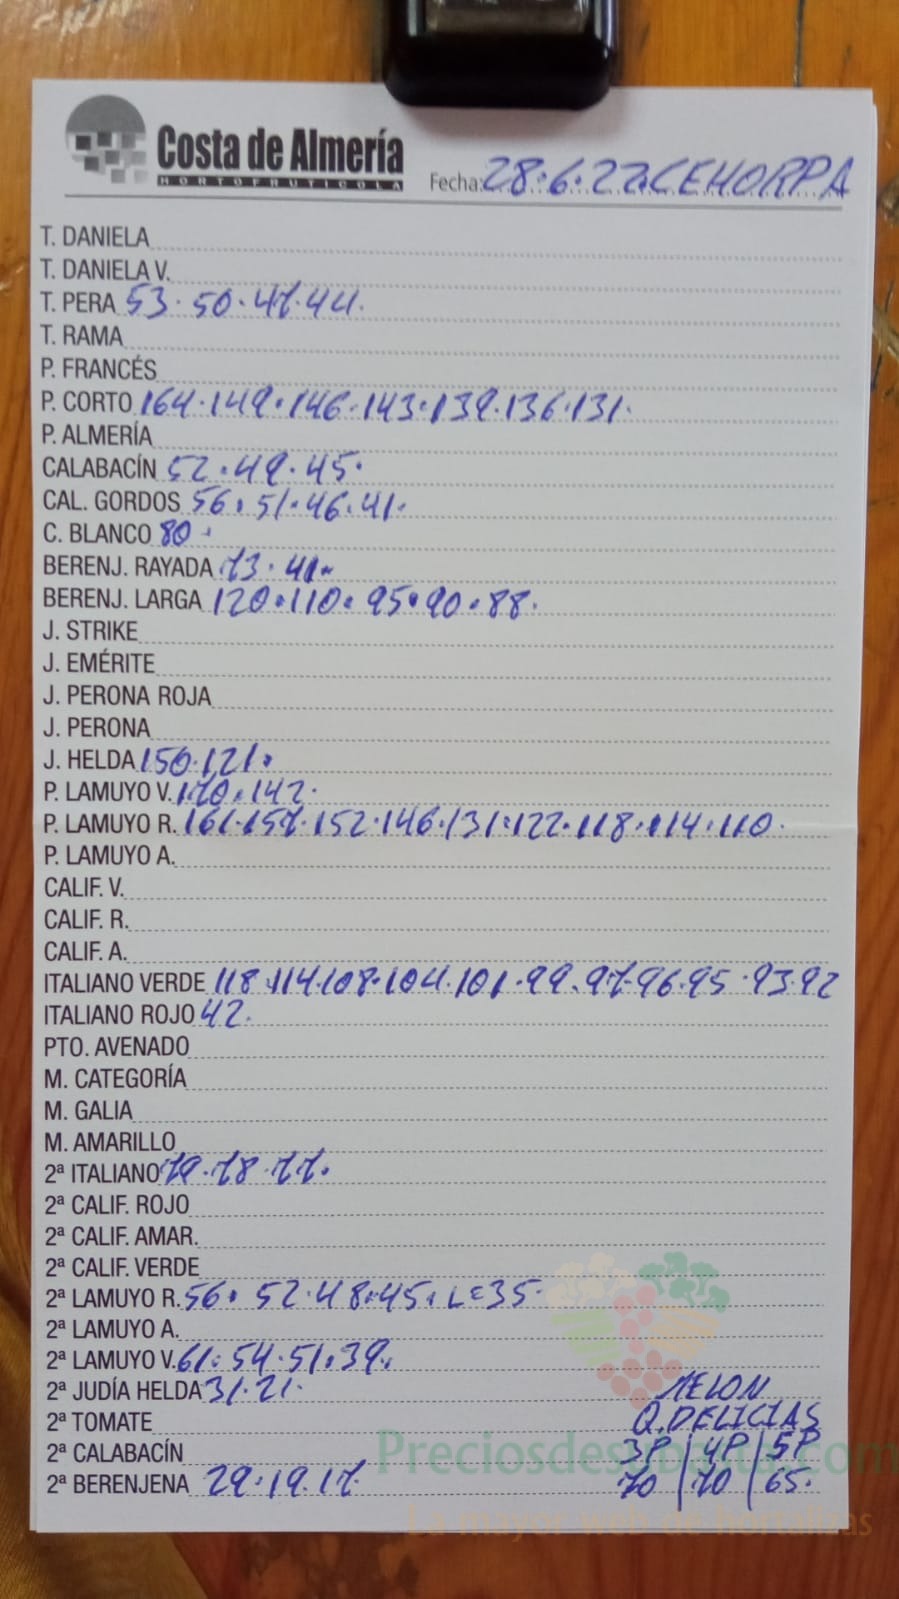 Costa de Almería
HORTOFRUTICOLA
Fecha: 28.6.22. CEHORPA
T. DANIELA
T. DANIELA V.
T. PERA 53. 50. 47. 44.
T. RAMA
P. FRANCÉS
P. CORTO 164. 149. 146. 143. 139. 136. 131.
P. ALMERÍA
CALABACÍN 52. 49. 45.
CAL. GORDOS 56. 51. 46. 41.
C. BLANCO 80.
BERENJ. RAYADA 73. 41.
BERENJ. LARGA 120. 110. 95. 90. 88.
J. STRIKE
J. EMÉRITE
J. PERONA ROJA
J. PERONA
J. HELDA 150. 121.
P. LAMUYO V. 170. 142.
P. LAMUYO R. 161. 157. 152. 146. 131. 122. 118. 114. 110.
P. LAMUYO A.
CALIF. V.
CALIF. R.
CALIF. A.
ITALIANO VERDE 118. 114. 108. 104. 101. 99. 97. 96. 95. 93. 92
ITALIANO ROJO 42.
PTO. AVENADO
M. CATEGORÍA
M. GALIA
M. AMARILLO
2ª ITALIANO 79. 78. 77.
2ª CALIF. ROJO
2ª CALIF. AMAR.
2ª CALIF. VERDE
2ª LAMUYO R. 56. 52. 48. 45. L=35.
2ª LAMUYO A.
2ª LAMUYO V. 61. 54. 51. 39.
2ª JUDÍA HELDA 31. 21. MELON
2ª TOMATE Q. DELICIAS
2ª CALABACÍN 3P | 4P | 5P
2ª BERENJENA 29. 19. 17. 70 | 70 | 65.
Preciosdesubasta.com
La mayor web de hortalizas